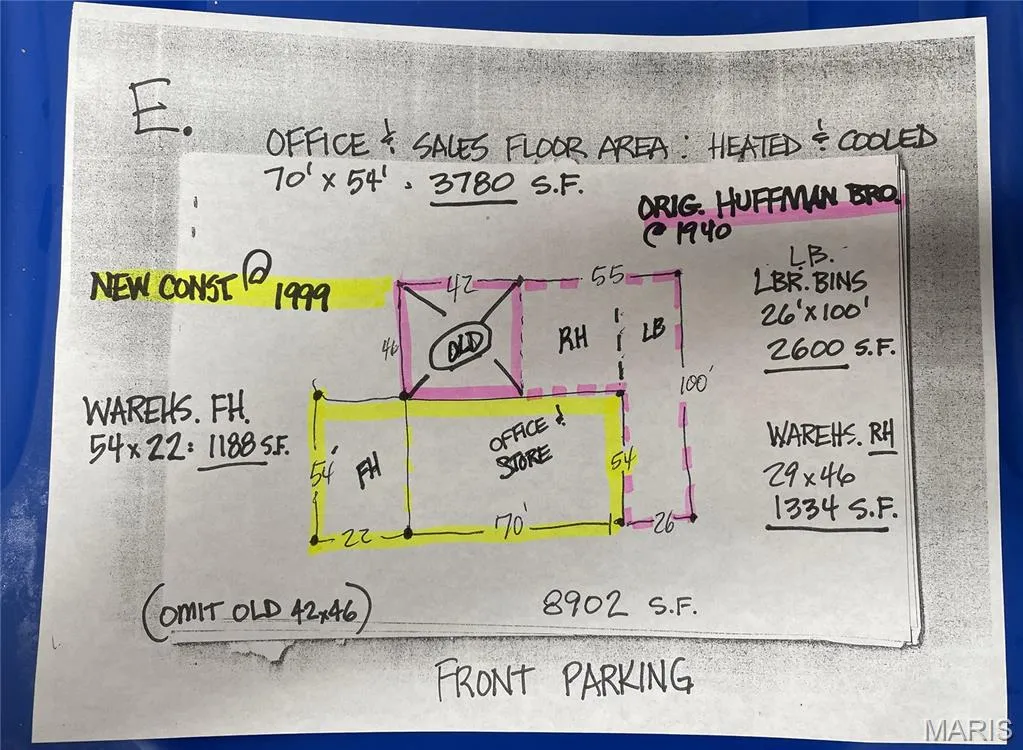 E.
OFFICE & SALES FLOOR AREA : HEATED & COOLED
70' x 54' . 3780 S.F.
ORIG. HUFFMAN BRO.
@ 1940
NEW CONST @ 1999
42
55
46
OLD
RH
LB
100'
LB.
LBR. BINS
26'x100'
2600 S.F.
WAREHS. FH.
54x22: 1188 S.F.
54'
FH
OFFICE &
STORE
54
22
70'
26
WAREHS. RH
29x46
1334 S.F.
(OMIT OLD 42x46)
8902 S.F.
FRONT PARKING
MARIS